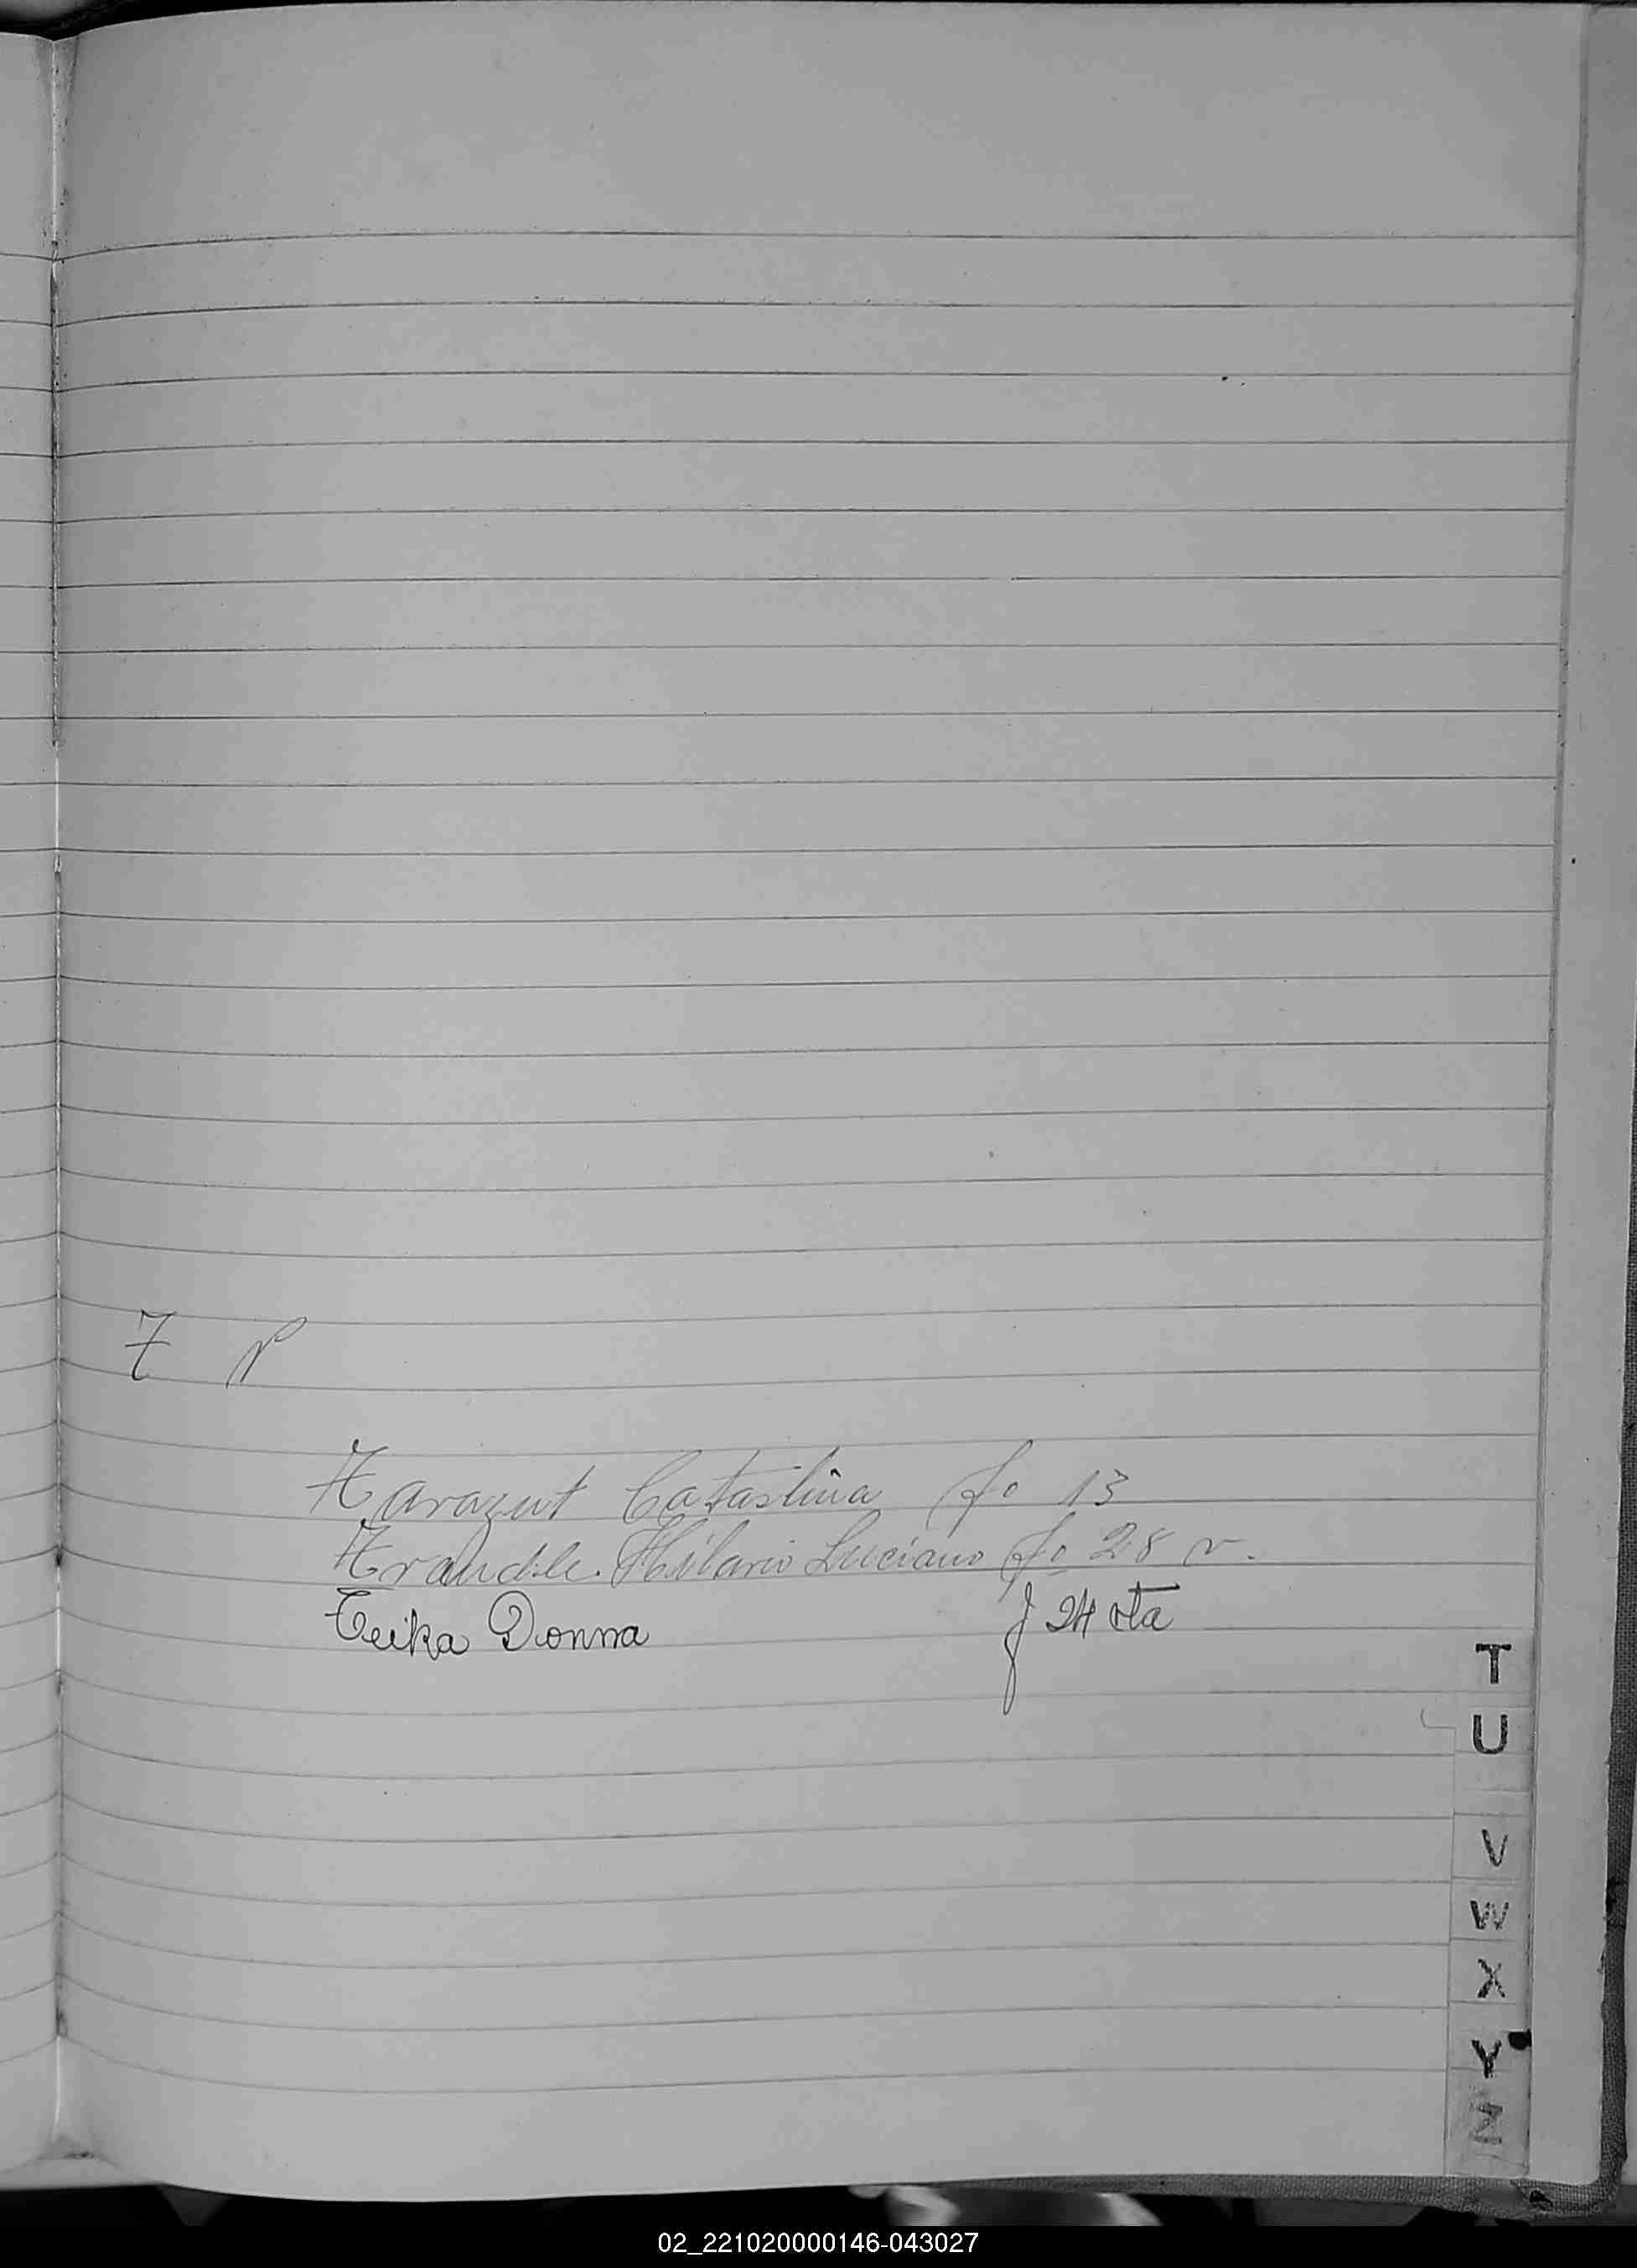 7 P
Tarazut Catastina fo 13
Trandle. Hilario Luciano fo 28 v.
Teika Donna f 24 vta
T
U
V
W
X
Y
Z
02_221020000146-043027